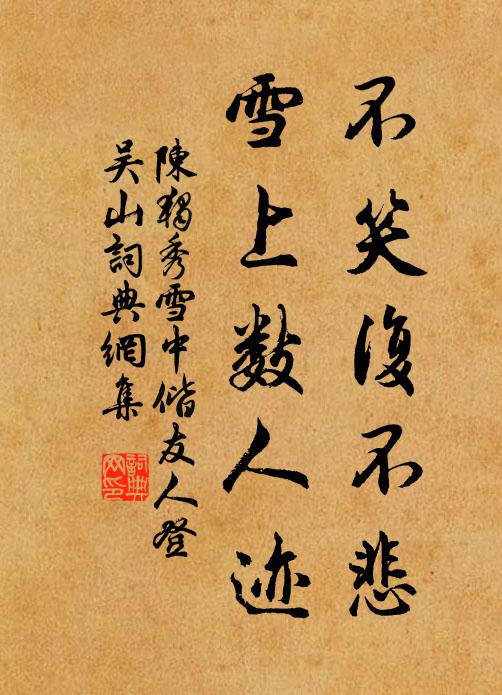 不笑復不悲
雪上数人迹
陳独秀雪中偕友人登
吴山詞典網集
詞典网印